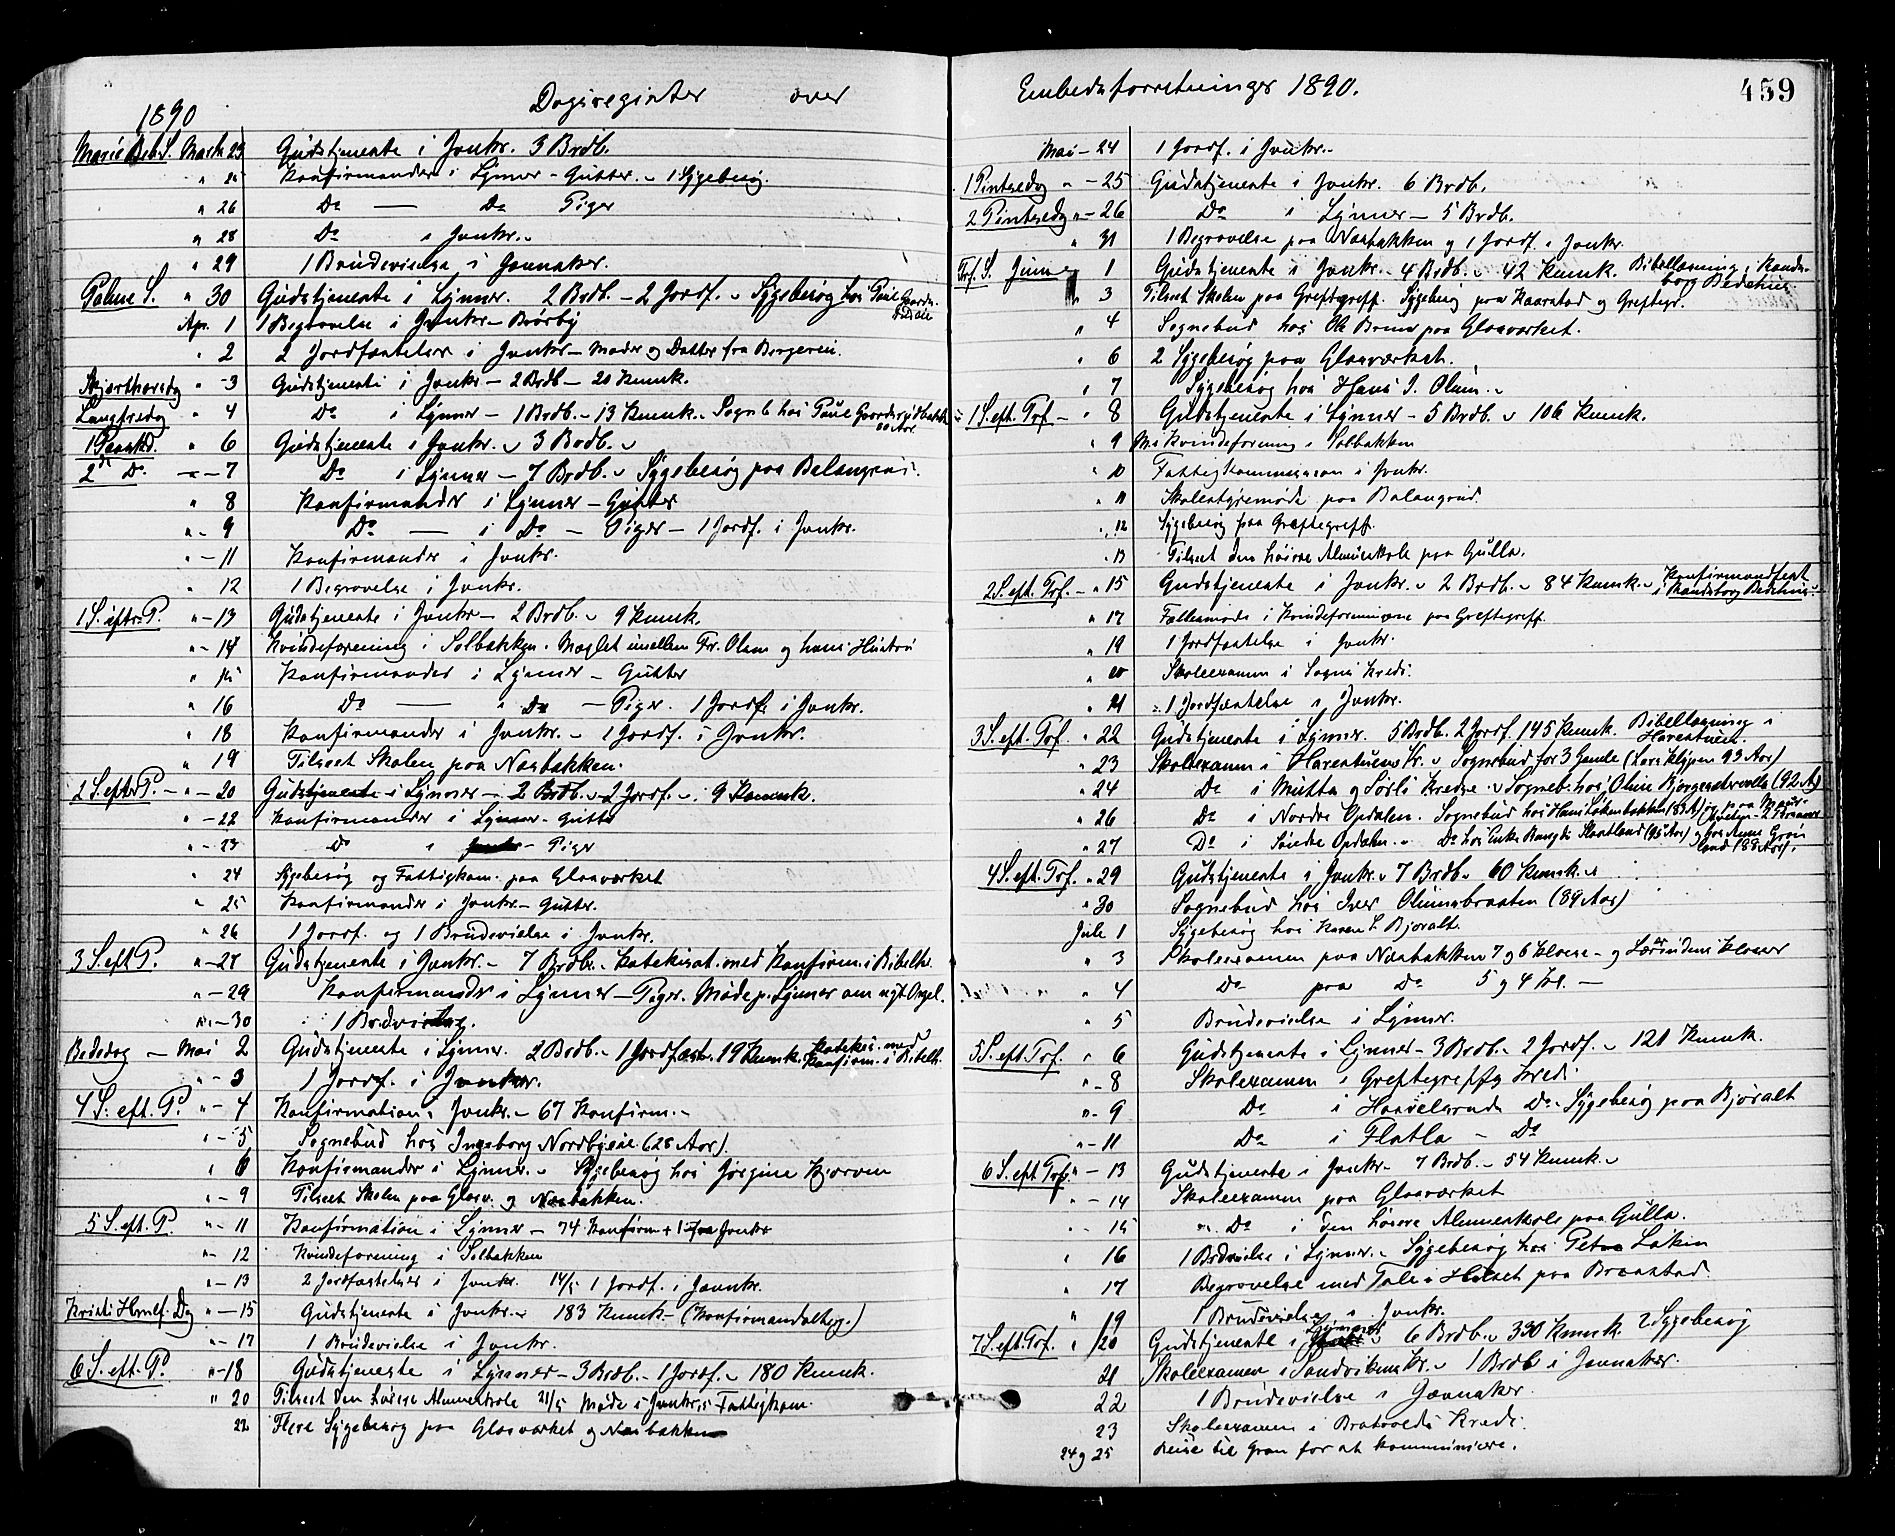 Dagsregister over
1890
Mariæ Beb. S. Marts 23 Gudstjeneste i Jevnkr. 3 Brdb.
" 25 Konfirmander i Lynner - Gutter. - 1 Sygebesøg
" 26 Do — Do Piger
" 28 Do i Jevnkr.
" 29 1 Brudevielse i Jævnaker.
Palme S. " 30 Gudstjeneste i Lynner. 2 Brdb. - 2 Jordf. - Sygebesøg hos
Ap. 1 1 Begravelse i Jevnkr - Brørby
" 2 2 Jordfæstelser i Jevnkr - Moder og Datter fra Bergereie.
Skjærthorsdg " - 3 Gudstjeneste i Jevnkr - 2 Brdb - 20 Kmnk.
Langfredag " 4 Do i Lynner - 1 Brdb. - 13 Kmnk. - Sogneb hos
1 Paaskd. " 6 Gudstjeneste i Jevnkr. - 3 Brdb. -
2den Do. - 7 Do i Lynner - 7 Brdb. - Sygebesøg paa
" 8 Konfirmander i Lynner - Gutter
" - 9 Do — i Do - Piger - 1 Jordf. i Jevnkr.
" - 11 Konfirmander i Jevnkr.
" 12 1 Begravelse i Jevnkr.
1 S. eftr. P. " - 13 Gudstjeneste i Jevnkr - 2 Brdb. - 9 Kmnk.
" - 14 Kvindeforening i Solbakken. Mæglet imellem Fr. Olsen og hans Hustru
" 15 Konfirmander i Lynner - Gutter
" 16 Do — " Do - Piger. 1 Jordf. i Jevnkr.
" 18 Konfirmander i Jevnkr. - 1 Jordf. i Jevnkr.
" 19 Tilseet Skolen paa Næsbakken.
2 S. eftr. P. - " - 20 Gudstjeneste i Lynner - 2 Brdb. - 2 Jordf. - 9 Kmnk.
" - 22 Konfirmander i Lynner - Gutter
" - 23 Do " - Piger
" 24 Sygebesøg og Fattigkom. paa Glasværket
" 25 Konfirmander i Jevnkr - Gutter.
" 26 1 Jordf. og 1 Brudevielse i Jevnkr.
3 S. eft P. " - 27 Gudstjeneste i Jevnkr. - 7 Brdb. - Katekisat. med Konfirm. i Bibelh.
" - 29 Konfirmander i Lynner - Piger. Møde p. Lynner om nyt Orgel.
" - 30 1 Brdvielse.
Bededag - Mai 2 Gudstjeneste i Lynner. 2 Brdb. - 1 Jordfæst. 19 Kmnk. Katekis. med Konfirm. i Bibelh.
" - 3 1 Jordf. i Jevnker.
4 S. eft. P. " - 4 Konfirmation i Jevnkr. - 67 Konfirm. -
" - 5 Sognebud hos Ingeborg Nordbyeie (28 Aar).
" 6 Konfirmander i Lynner. - Sygebesøg hos Jørgine Kjorven
" - 9 Tilseet Skolen paa Glasv. og Næsbakken.
5 S. eft. P. " - 11 Konfirmation i Lynner - 74 Konfirm + 1 fra Jevnkr
" - 12 Kvindeforening i Solbakken
" - 13 2 Jordfæstelser i Jevnkr. 14/5 1 Jordf. i Jævnkr.
Kristi Hmlf. Dg " - 15 Gudstjeneste i Jevnkr. - 183 Kmnk. - (Konfirmandaltherg.)
" - 17 1 Brudevielse i Jevnkr.
6 S. eft. P. " - 18 Gudstjeneste i Lynner - 3 Brdb. - 1 Jordf. - 180 Kmnk.
" 20 Tilseet den høiere Almueskole 21/5 Møde i Jevnkr. Fattigkom.
22 Flere Sygebesøg paa Glasværket og Næsbakken
Embedsforretninger 1890.
459
Mai - 24 1 Jordf. i Jevnkr.
1 Pintsedg " - 25 Gudstjeneste i Jevnkr. 6 Brdb.
2 Pintsedg " - 26 Do i Lynner - 5 Brdb.
" 31 1 Begravelse paa Næsbakken og 1 Jordf. i Jevnkr.
Trf. S. Juni 1 Gudstjeneste i Jevnkr. - 4 Brdb. - 42 Kmnk. Bibellæsning i Randsborg Bedehus.
" 3 Tilseet Skolen paa Greftegreff. Sygebesøg paa Kaarstad og Greftegr.
" 4 Sognebud hos Ole Bruun paa Glasværket.
" 6 2 Sygebesøg paa Glasværket.
" 7 Sygebesøg hos Hans I. Olum.
1 S. eft. Trf - " 8 Gudstjeneste i Lynner - 5 Brdb. - 106 Kmnk.
" 9 Kvindeforening i Solbakken
" 10 Fattigkommission i Jevnkr.
" 11 Skolestyremøde paa
" 12 Sygebesøg paa Greftegreff.
" 13 Tilseet den høiere Almueskole paa Gulla.
2 S. eft. Trf. - " 15 Gudstjeneste i Jevnkr. - 2 Brdb. - 84 Kmnk. - Konfirmandfest i Randsborg Bedehus
" 17 Fællesmøde i Kvindeforeningene paa Greftegreff.
" 19 1 Jordfæstelse i Jevnkr.
" 20 Skoleexamen i Sogns Kreds.
" 21 1 Jordfæstelse i Jevnkr.
3 S. eft. Trf. " 22 Gudstjeneste i Lynner. 5 Brdb. 2 Jordf. 145 Kmnk. Bibellæsning i Harestuen.
" 23 Skoleexamen i Harestuens Kr. - Sognebud for 3 Gamle (Lars Klypen 93 Aar)
" 24 Do i Mutta og Sørli Kredse - Sogneb. hos Oline (92 A.)
" 26 Do i Nordre Opdalen. Sognebud hos Hans
" 27 Do i Søndre Opdalen. - Do hos Enke (95 Aar) og hos Anne Granlund (88 Aar).
4 S. eft. Trf. " 29 Gudstjeneste i Jevnkr. - 7 Brdb. - 60 Kmnk. -
" 30 Sognebud hos Iver Olumsbraaten (89 Aar)
Juli 1 Sygebesøg hos Karen L. Bjøralt.
" 3 Skoleexamen paa Næsbakken 7 og 6 Klasse - og Lærerindens Klasser
" 4 Do paa Do 5 og 4 Kl. -
" 5 Brudevielse i Lynner.
5 S. eft. Trf. " 6 Gudstjeneste i Lynner - 3 Brdb. - 2 Jordf. - 121 Kmnk.
" - 8 Skolexamen i Greftegreffs Kreds
" - 9 Do i Haavelsruds Do - Sygebesøg paa Bjøralt
" - 11 Do i Flatla - Do
6 S. eft. Trf. " - 13 Gudstjeneste i Jevnkr - 7 Brdb. - 54 Kmnk. -
" - 14 Skoleexamen paa Glasværket
" - 15 Do i den høiere Almueskole paa Gulla.
" 16 1 Brdvielse i Lynner. - Sygebesøg hos Petra Løken
" 17 Begravelse med Tale i Huset paa Braastad.
" 19 1 Brudevielse i Jevnkr.
7 S. eft. Trf. " 20 Gudstjeneste i Lynner - 6 Brdb. - 330 Kmnk. 2 Sygebesøg
21 Skoleexamen i Sandvikens Kr. - 1 Brdb i Jævnaker.
22 1 Brudevielse i Jævnaker.
23 Skoleexamen i Bratvolds Kreds.
24 og 25 Reise til Gran for at kommunicere.